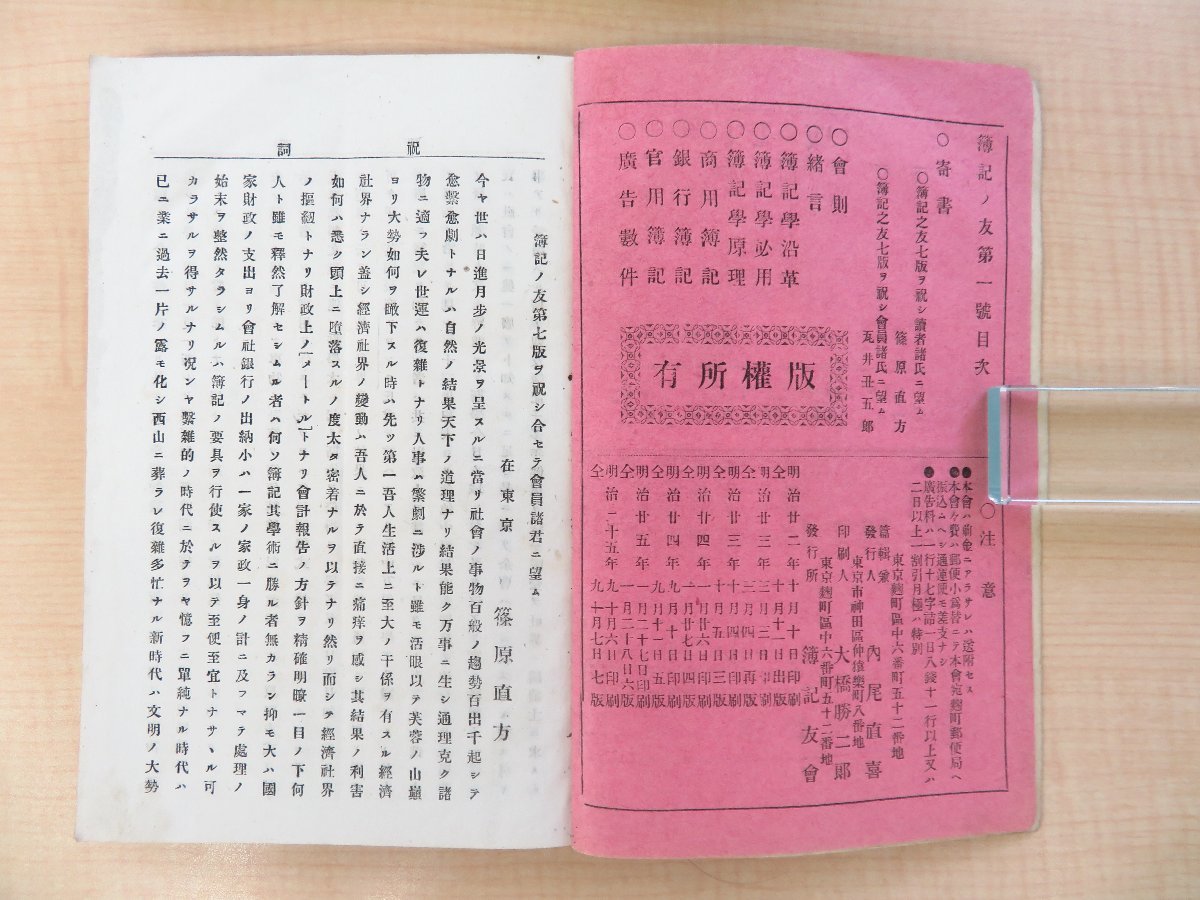 簿記ノ友第一號目次
○寄書
○簿記之友七版ヲ祝シ讀者諸氏ニ望ム
篠原直方
○簿記之友七版ヲ祝シ會員諸氏ニ望ム
瓦井丑五郎
○會則
○緒言
○簿記學沿革
○簿記學必用
○簿記學原理
○商用簿記
○銀行簿記
○官用簿記
○廣告數件
版權所有
○注意
●本會ハ前金ニアラサレハ送附セス
●本會々費ハ郵便小爲替ニテ本會宛麹町郵便局ヘ
振込ムヘシ通運便モ差支ナシ
●廣告料ハ一行十七字詰一日八錢十一行以上又ハ
二日以上一割引月極ハ特別
東京麹町區中六番町五十二番地
篇輯兼
發行人
內尾直喜
東京市神田區仲猿樂町八番地
印刷人
大橋勝二郎
東京麹町區中六番町五十二番地
發行所
簿記友會
明治廿二年十月十日印刷
仝年十月十一日出版
明治廿三年三月三日印刷
仝年三月四日再版
明治廿三年十月三日印刷
仝年十月四日三版
明治廿四年一月廿六日印刷
仝年一月廿七日四版
明治廿四年九月十四日印刷
仝年九月十五日五版
明治廿五年一月二十七日印刷
仝年一月二十八日六版
明治二十五年九月六日印刷
仝年九月七日七版
祝詞
簿記ノ友第七版ヲ祝シ合セテ會員諸君ニ望ム
在東京 篠原直方
今ヤ世ハ日進月步ノ光景ヲ呈スルニ當リ社會ノ事物百般ノ趨勢百出千起シテ
愈繫愈劇トナルハ自然ノ結果天下ノ道理ナリ結果能ク万事ニ生シ通理克ク諸
物ニ適フ夫レ世運ハ復雜トナリ人事ハ繁劇ニ涉ルト雖モ活眼以テ芙蓉ノ山巓
ヨリ大勢如何ヲ瞰下スル時ハ先ツ第一吾人生活上ニ至大ノ干係ヲ有スル經濟
社界ナラン盖シ經濟社界ノ變動ハ吾人ニ於テ直接ニ痛痒ヲ感シ其結果ノ利害
如何ハ悉ク頭上ニ墮落スルノ度太タ密着ナルヲ以テナリ然リ而シテ經濟社界
ノ樞紐トナリ財政上ノ「メートル」トナリ會計報告ノ方針ヲ精確明瞭一目ノ下何
人ト雖モ釋然了解セシムル者ハ何ソ簿記其學術ニ勝ル者無カラン抑モ大ハ國
家財政ノ支出ヨリ會社銀行ノ出納小ハ一家ノ家政一身ノ計ニ及フマテ處理ノ
始末ヲ整然タラシムルハ簿記ノ要具ヲ行使スルヲ以テ至便至宜トナサヽル可
カラサルヲ得サルナリ況ンヤ繫雜的ノ時代ニ於テヲヤ憶フニ單純ナル時代ハ
已ニ業ニ過去一片ノ露モ化シ西山ニ葬ラレ復雜多忙ナル新時代ハ文明ノ大勢